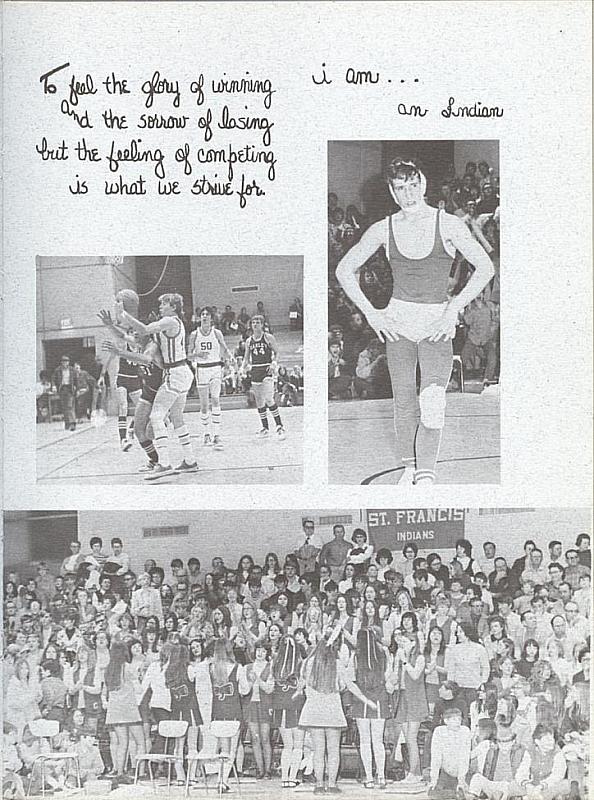 To feel the glory of winning
And the sorrow of losing
but the feeling of competing
is what we strive for.
i am...
an Indian
50
44
ST. FRANCIS
INDIANS